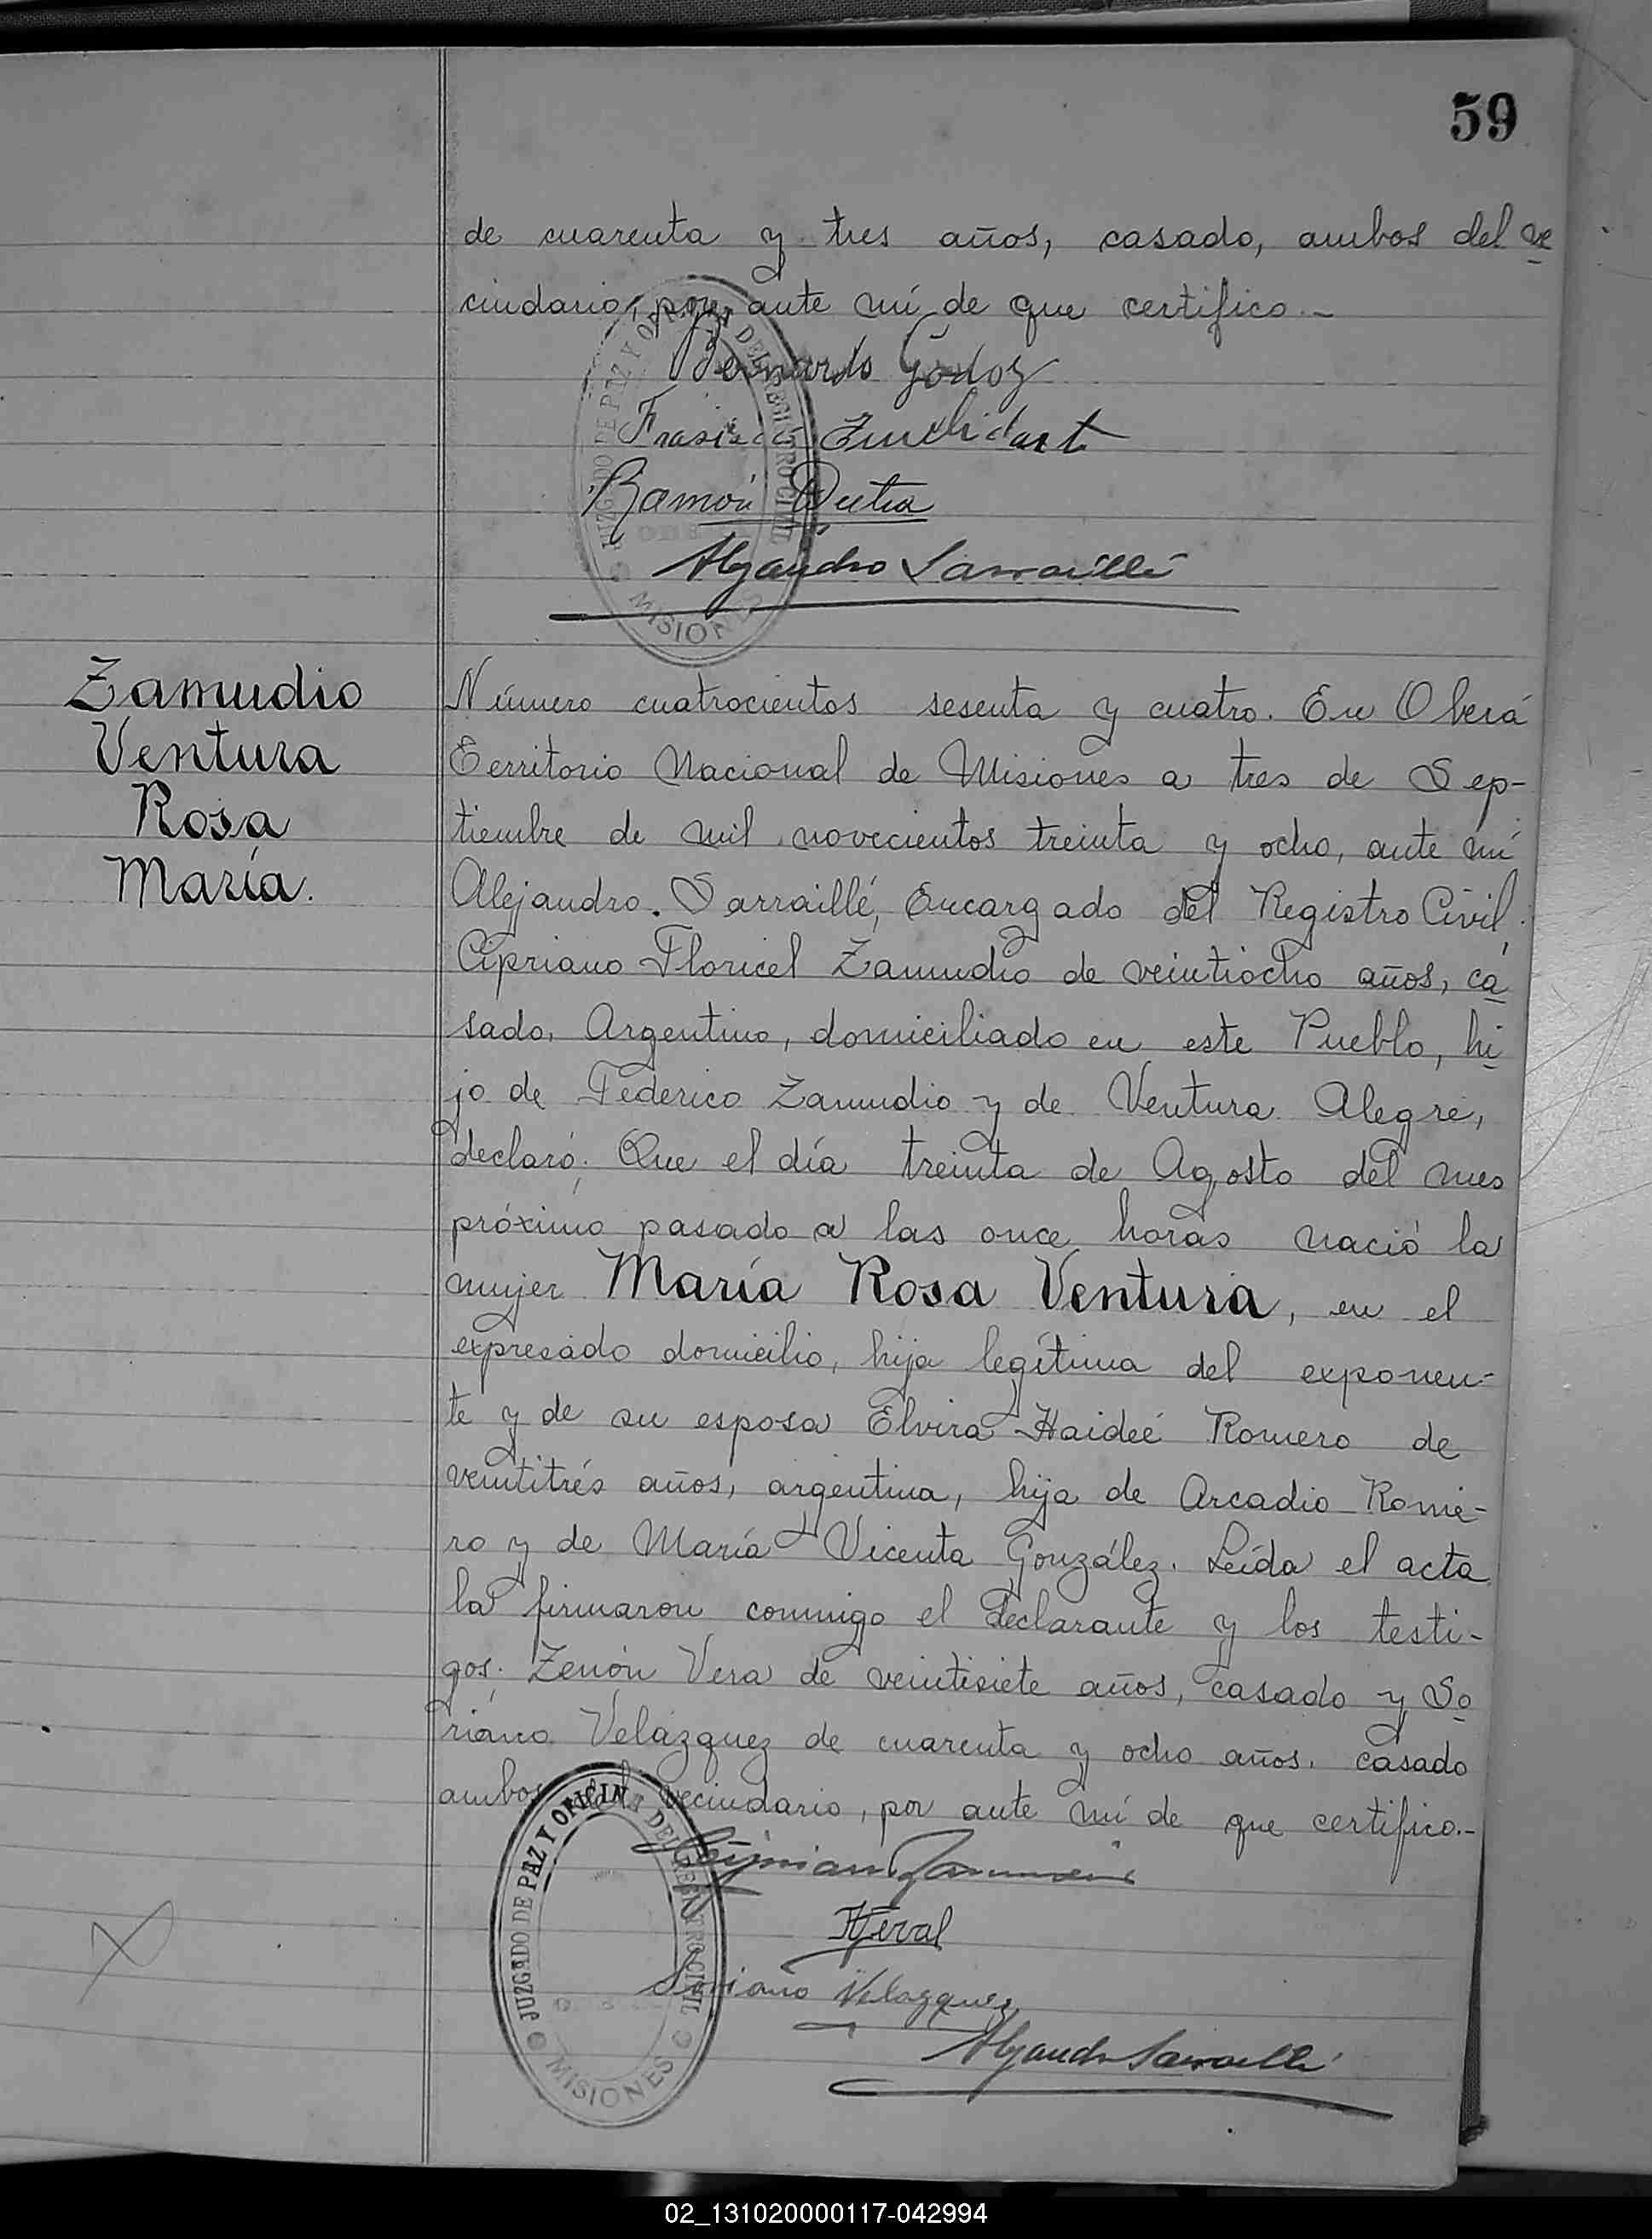 59
de cuarenta y tres años, casado, ambos del ve
cindario, por ante mí de que certifico.-
Bernardo Godoy
Ramón Dutra
Alejandro Sarraillé
JUZGADO DE PAZ Y OFICINA DEL REGISTRO CIVIL
MISIONES
Zamudio
Ventura
Rosa
María.
Número cuatrocientos sesenta y cuatro. En Oberá
Territorio Nacional de Misiones a tres de Sep-
tiembre de mil novecientos treinta y ocho, ante mí
Alejandro Sarraillé, Encargado del Registro Civil,
Cipriano Floricel Zamudio de veintiocho años, ca
sado, Argentino, domiciliado en este Pueblo, hi
jo de Federico Zamudio y de Ventura Alegre,
declaró: Que el día treinta de Agosto del mes
próximo pasado a las once horas nació la
mujer María Rosa Ventura, en el
expresado domicilio, hija legítima del exponen-
te y de su esposa Elvira Haideé Romero de
veintitrés años, argentina, hija de Arcadio Rome-
ro y de María Vicenta González. Leída el acta
la firmaron conmigo el declarante y los testi-
gos: Zenón Vera de veintisiete años, casado y So
riano Velázquez de cuarenta y ocho años, casado
ambos del vecindario, por ante mí de que certifico.-
Cipriano Zamudio
Soriano Velazquez
Alejandro Sarraillé
JUZGADO DE PAZ Y OFICINA DEL REGISTRO CIVIL
MISIONES
02_131020000117-042994